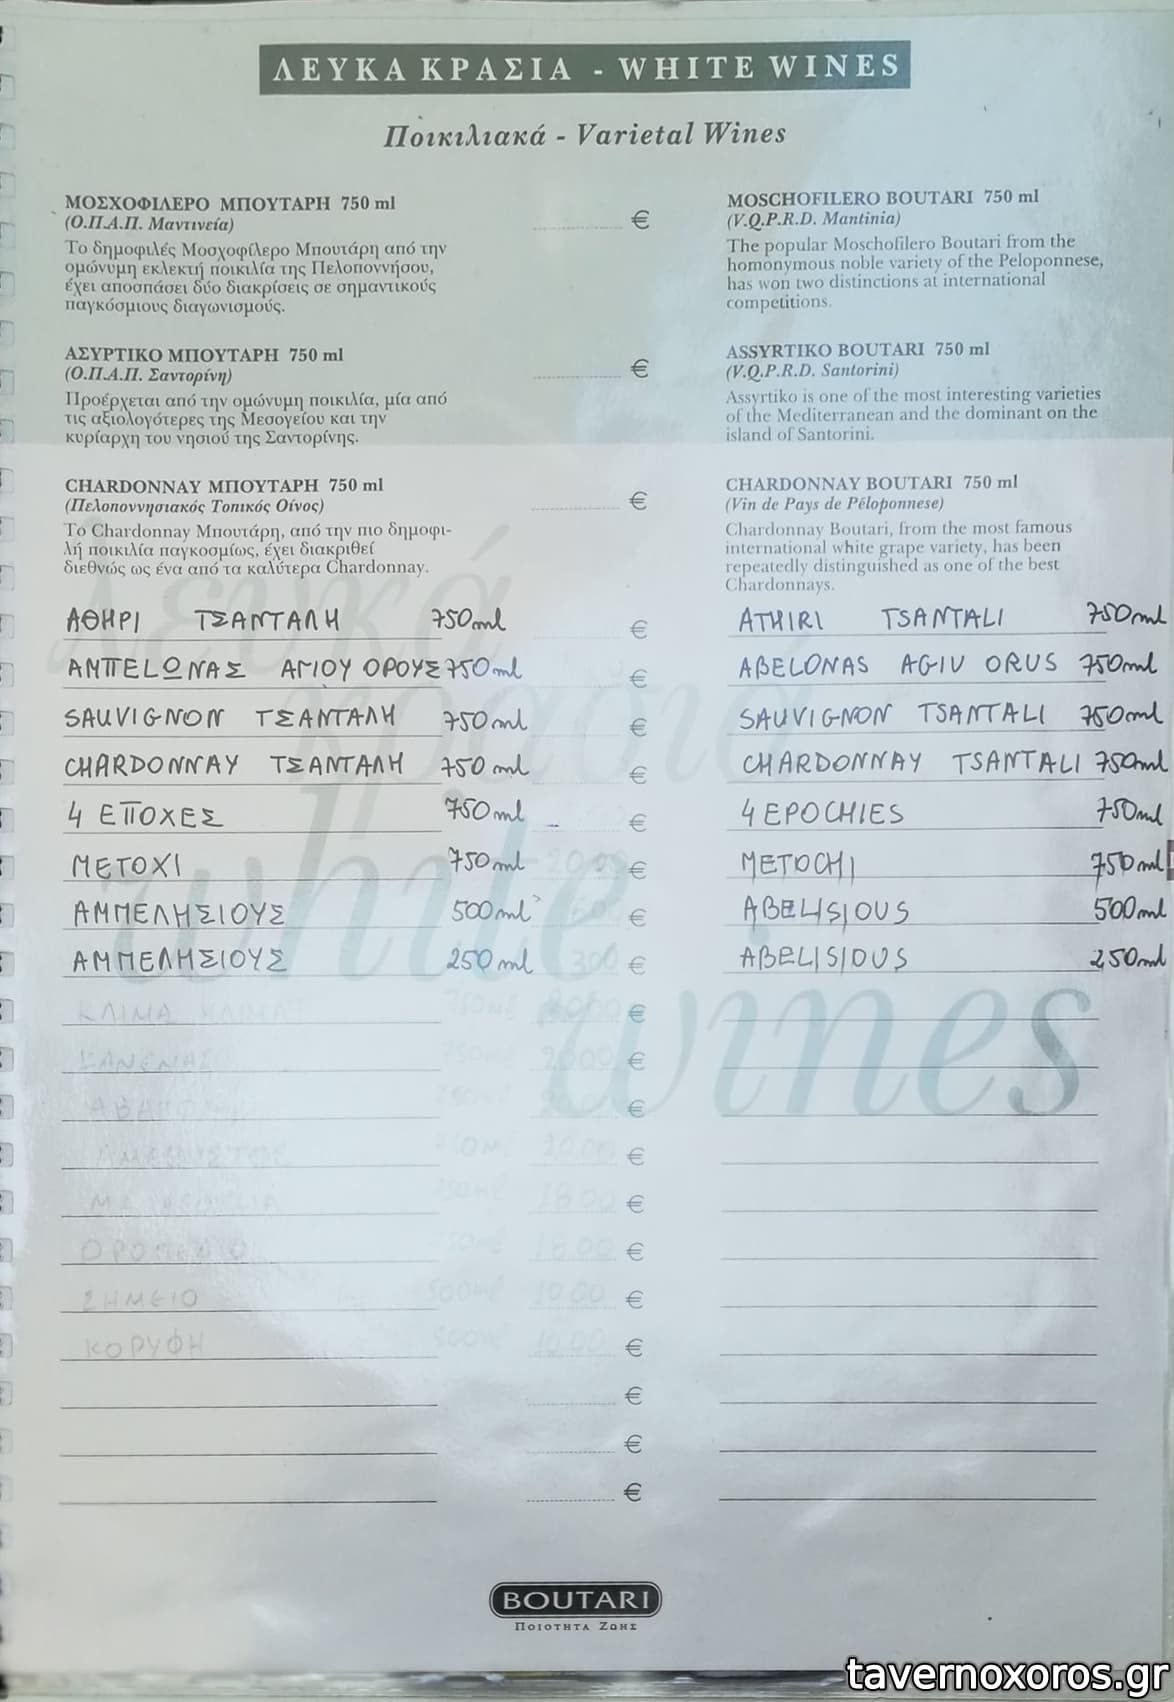 ΛΕΥΚΑ ΚΡΑΣΙΑ - WHITE WINES
Ποικιλιακά - Varietal Wines
ΜΟΣΧΟΦΙΛΕΡΟ ΜΠΟΥΤΑΡΗ 750 ml
(Ο.Π.Α.Π. Μαντινεία)
€
Το δημοφιλές Μοσχοφίλερο Μπουτάρη από την
ομώνυμη εκλεκτή ποικιλία της Πελοποννήσου,
έχει αποσπάσει δύο διακρίσεις σε σημαντικούς
παγκόσμιους διαγωνισμούς.
MOSCHOFILERO BOUTARI 750 ml
(V.Q.P.R.D. Mantinia)
The popular Moschofilero Boutari from the
homonymous noble variety of the Peloponnese,
has won two distinctions at international
competitions.
ΑΣΥΡΤΙΚΟ ΜΠΟΥΤΑΡΗ 750 ml
(Ο.Π.Α.Π. Σαντορίνη)
€
Προέρχεται από την ομώνυμη ποικιλία, μία από
τις αξιολογότερες της Μεσογείου και την
κυρίαρχη του νησιού της Σαντορίνης.
ASSYRTIKO BOUTARI 750 ml
(V.Q.P.R.D. Santorini)
Assyrtiko is one of the most interesting varieties
of the Mediterranean and the dominant on the
island of Santorini.
CHARDONNAY ΜΠΟΥΤΑΡΗ 750 ml
(Πελοποννησιακός Τοπικός Οίνος)
€
Το Chardonnay Μπουτάρη, από την πιο δημοφι-
λή ποικιλία παγκοσμίως, έχει διακριθεί
διεθνώς ως ένα από τα καλύτερα Chardonnay.
CHARDONNAY BOUTARI 750 ml
(Vin de Pays de Péloponnese)
Chardonnay Boutari, from the most famous
international white grape variety, has been
repeatedly distinguished as one of the best
Chardonnays.
ΑΘΗΡΙ ΤΣΑΝΤΑΛΗ 750ml € ATHIRI TSANTALI 750ml
ΑΜΠΕLΩΝΑΣ ΑΓΙΟΥ ΟΡΟΥΣ 750ml € ABELONAS AGIU ORUS 750ml
SAUVIGNON ΤΣΑΝΤΑΛΗ 750ml € SAUVIGNON TSANTALI 750ml
CHARDONNAY ΤΣΑΝΤΑΛΗ 750ml € CHARDONNAY TSANTALI 750ml
4 ΕΠΟΧΕΣ 750ml € 4 EPOCHIES 750ml
ΜΕΤΟΧΙ 750ml € METOCHI 750ml
ΑΜΠΕΛΗΣΙΟΥΣ 500ml € ABELISIOUS 500ml
ΑΜΠΕΛΗΣΙΟΥΣ 250ml € ABELISIOUS 250ml
€
€
€
€
€
€
ΣΗΜΕΙΟ 500ml 10.00 €
ΚΟΡΥΦΗ 500ml 10.00 €
€
€
€
Λευκά κρασιά
white wines
BOUTARI
ΠΟΙΟΤΗΤΑ ΖΩΗΣ
tavernoxoros.gr